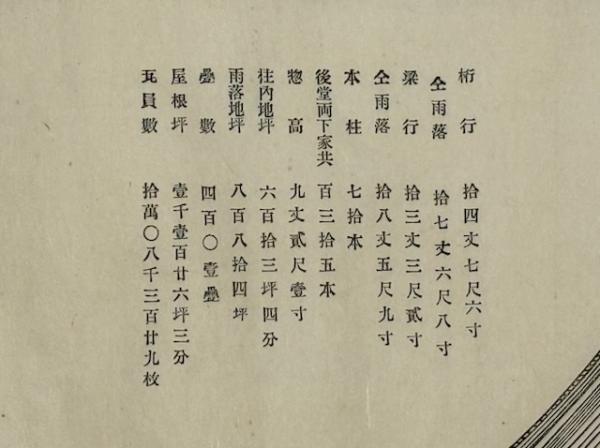 桁行 拾四丈七尺六寸
仝雨落 拾七丈六尺八寸
梁行 拾三丈三尺貳寸
仝雨落 拾八丈五尺九寸
本柱 七拾本
後堂両下家共 百三拾五本
惣高 九丈貳尺壹寸
柱內地坪 六百拾三坪四分
雨落地坪 八百八拾四坪
疊數 四百〇壹疊
屋根坪 壹千壹百廿六坪三分
瓦員數 拾萬〇八千三百廿九枚